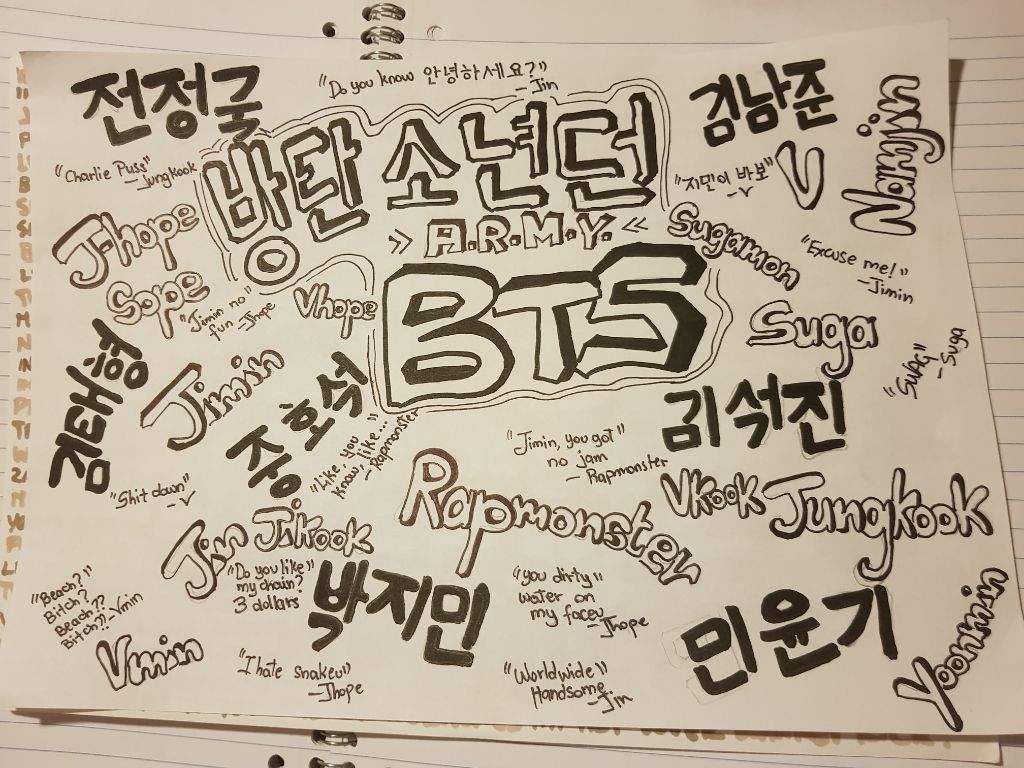 전정국
"Do you know 안녕하세요?"
-Jin
김남준
Namjin
"Charlie Puss"
-Jungkook
방탄소년단
"지민이 바보"
-V
V
J-hope
>> A.R.M.Y. <<
Sugamon
"Excuse me!"
-Jimin
Sope
"Jimin no
fun" -Jhope
Vhope
BTS
Suga
"SWAG"
-Suga
김태형
Jimin
정호석
"Like, you
know, like..."
-Rapmonster
"Jimin, you got
no jam"
-Rapmonster
김석진
"Shit down"
-V
Rapmonster
Vkook
Jungkook
Jin
Jikook
"Beach?
Bitch?
Beach??
Bitch??" -Vmin
"Do you like
my chain?
3 dollars"
박지민
"you dirty
water on
my faceu"
-Jhope
민윤기
Yoonmin
Vmin
"I hate snakeu"
-Jhope
"Worldwide
Handsome"
-Jin